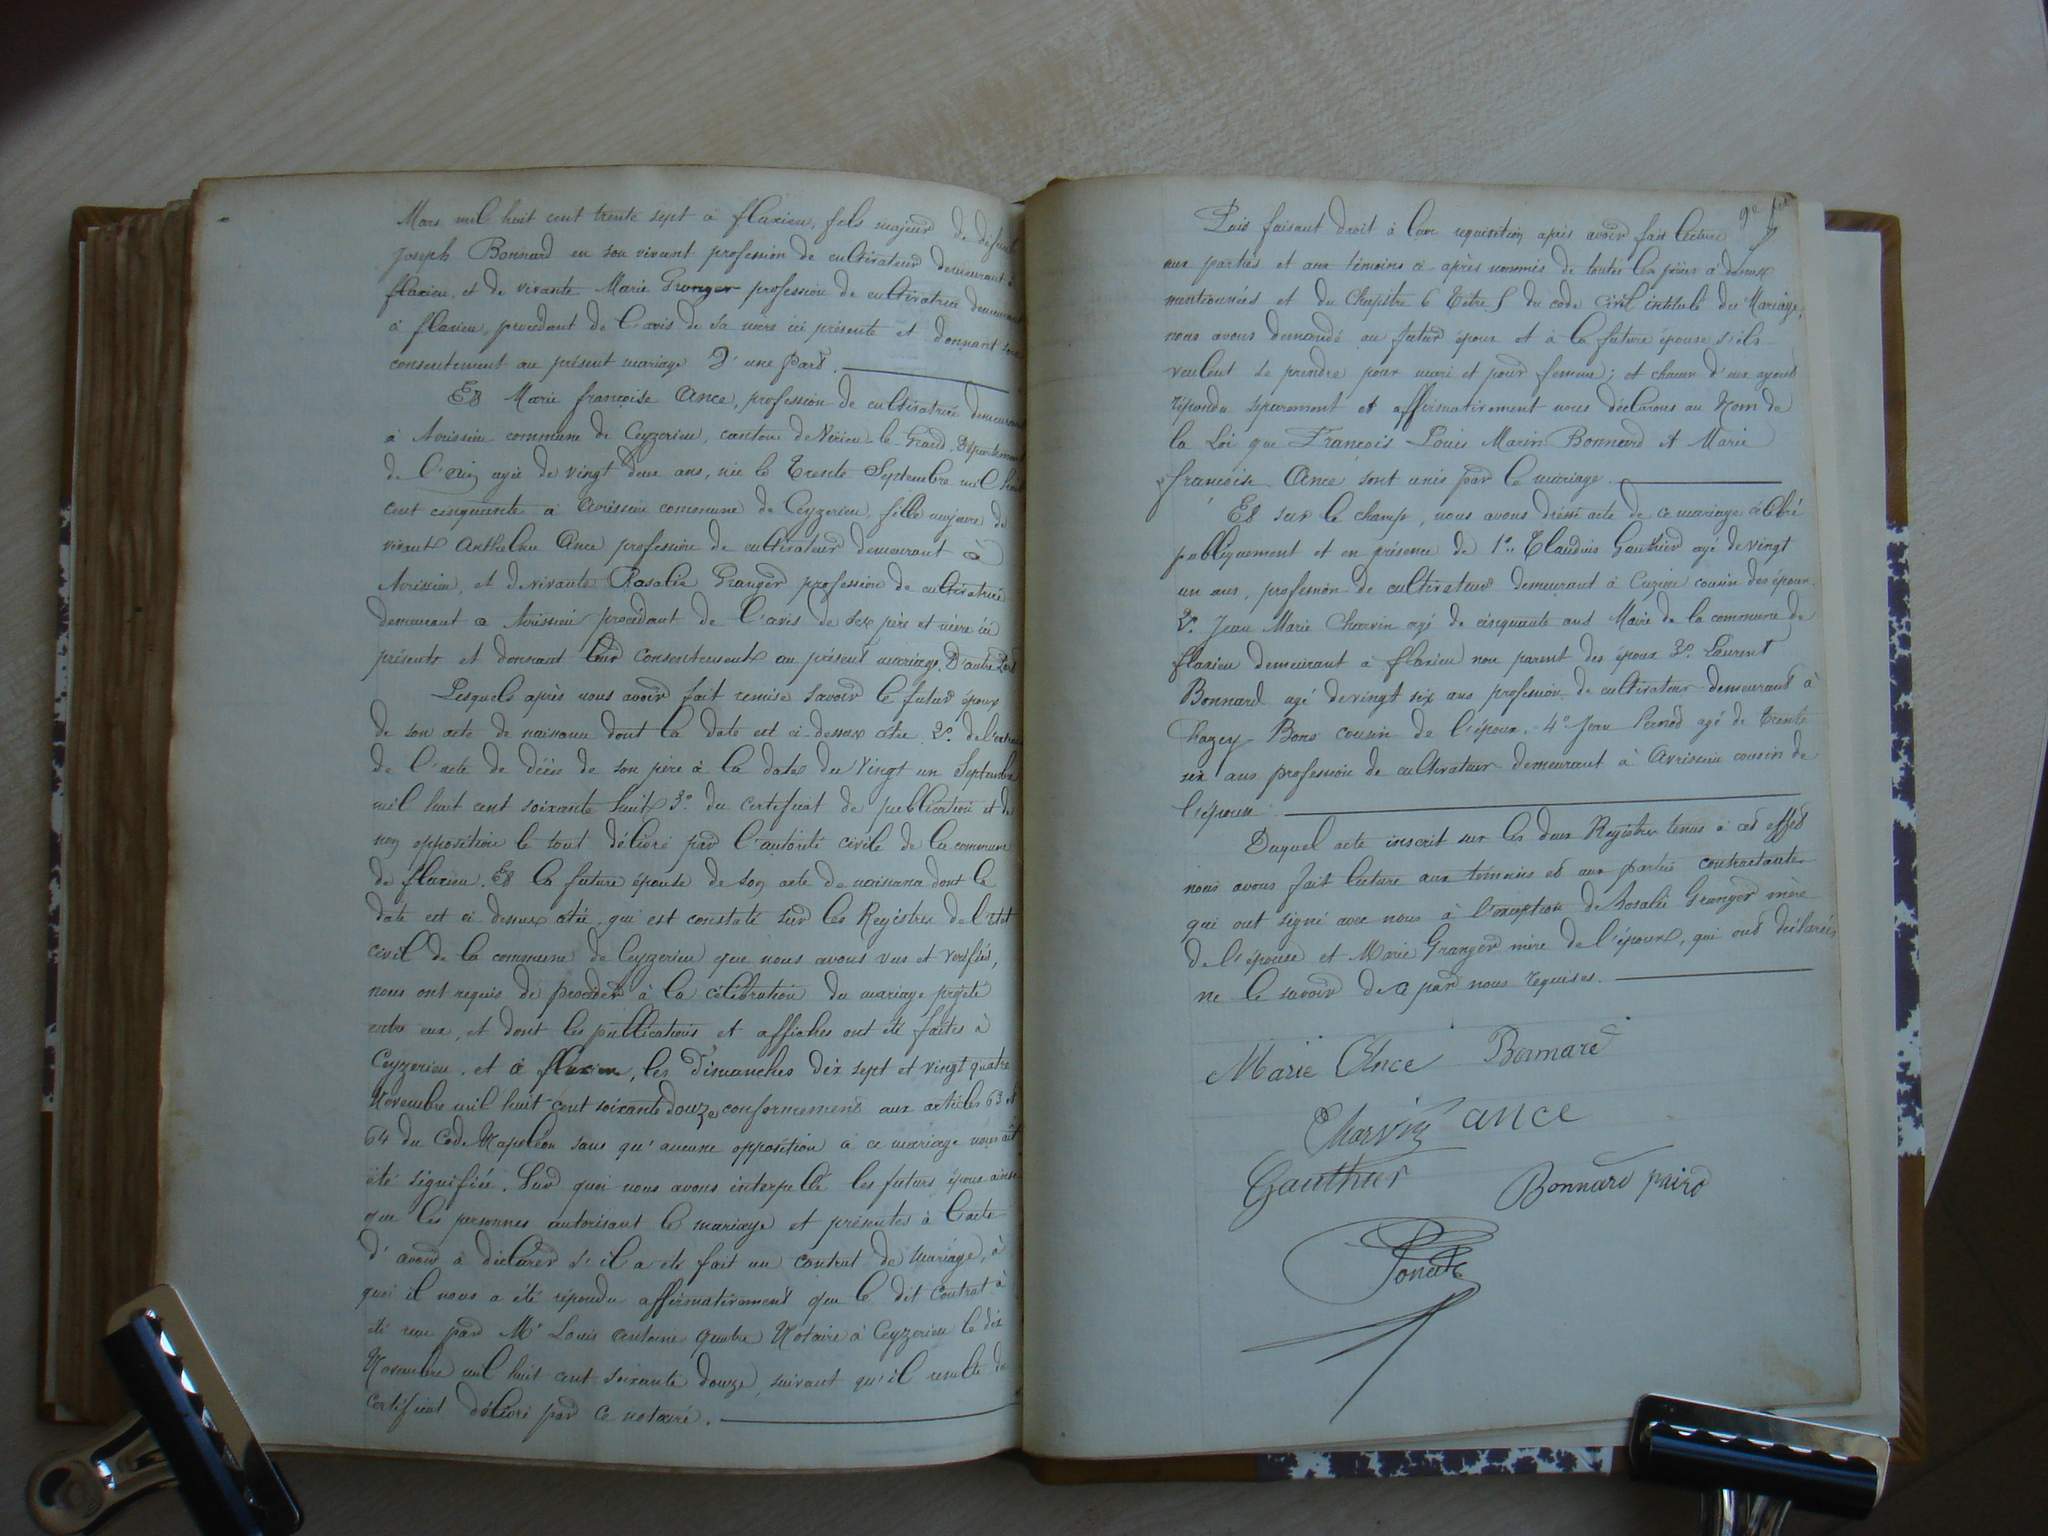 Mars mil huit cent trente sept à flaxieu, fils majeur de défunt
Joseph Bonnard en son vivant profession de cultivateur demeurant à
flaxieu, et de vivante Marie Granger profession de cultivatrice demeurant
à flaxieu, procédant de l'avis de sa mère ici présente et donnant son
consentement au présent mariage D'une Part.
Et Marie françoise Ance, profession de cultivatrice demeurant
à Avrissieu commune de Ceyzerieu, canton de Virieu le Grand, Département
de l'ain agée de vingt deux ans, née le Trente Septembre mil huit
cent cinquante à Avrissieu commune de Ceyzerieu, fille majeure de
vivant Anthelme Ance profession de cultivateur demeurant à
Avrissieu, et de vivante Rosalie Granger profession de cultivatrice
demeurant à Avrissieu procédant de l'avis de ses père et mère ici
présents et donnant leur consentement au présent mariage, D'autre Part
Lesquels après nous avoir fait remise savoir le futur époux
de son acte de naissance dont la date est ci-dessus citée 2º. de l'extrait
de l'acte de décès de son père à la date du Vingt un Septembre
mil huit cent soixante huit 3º. du certificat de publication et de
non opposition le tout délivré par l'autorité civile de la commune
de flaxieu. Et la future épouse de son acte de naissance dont la
date est ci dessus citée, qui est constaté sur les Registres de l'état
civil de la commune de Ceyzerieu que nous avons vus et vérifiés,
nous ont requis de procéder à la célébration du mariage projeté
entre eux, et dont les publications et affiches ont été faites à
Ceyzerieu, et à flaxieu, les Dimanches dix sept et vingt quatre
Novembre mil huit cent soixante douze conformement aux articles 63 et
64 du Code Napoléon sans qu'aucune opposition à ce mariage nous ait
été signifiée. Sur quoi nous avons interpellé les futurs époux ainsi
que les personnes autorisant le mariage et présentes à l'acte
d'avoir à déclarer s'il a été fait un contrat de mariage, à
quoi il nous a été répondu affirmativement que le dit contrat a
été reçu par Mᵉ Louis Antoine Notaire à Ceyzerieu le dix
Novembre mil huit cent soixante douze, suivant qu'il resulte du
certificat délivré par ce notaire.
9e
Puis faisant droit à leur requisition après avoir fait lecture
aux parties et aux témoins ci-après nommés de toutes les pièces ci dessus
mentionnées et du Chapitre 6 Titre 5 du code Civil intitulé du Mariage,
nous avons demandé au futur époux et à la future épouse s'ils
veulent se prendre pour mari et pour femme; et chacun d'eux ayant
répondu séparément et affirmativement nous déclarons au Nom de
la Loi que François Louis Marin Bonnard et Marie
françoise Ance sont unis par le mariage.
Et sur le champ, nous avons dressé acte de ce mariage célébré
publiquement et en présence de 1º. Claudius Gauthier agé de vingt
un ans, profession de cultivateur demeurant à Cuzieu cousin des époux.
2º. Jean Marie Charvin agé de cinquante ans Maire de la commune de
flaxieu demeurant à flaxieu non parent des époux 3º. Laurent
Bonnard agé de vingt six ans profession de cultivateur demeurant à
Chazey Bons cousin de l'époux. 4º Jean agé de Trente
six ans profession de cultivateur demeurant à Avrissieu cousin de
l'époux.
Duquel acte inscrit sur les deux Registres tenus à cet effet
nous avons fait lecture aux témoins et aux parties contractantes
qui ont signé avec nous à l'exception de Rosalie Granger mère
de l'épouse et Marie Granger mère de l'époux, qui ont déclarés
ne le savoir de ce par nous requises.
Marie Ance Bonnard
Charvin ance
Gauthier Bonnard